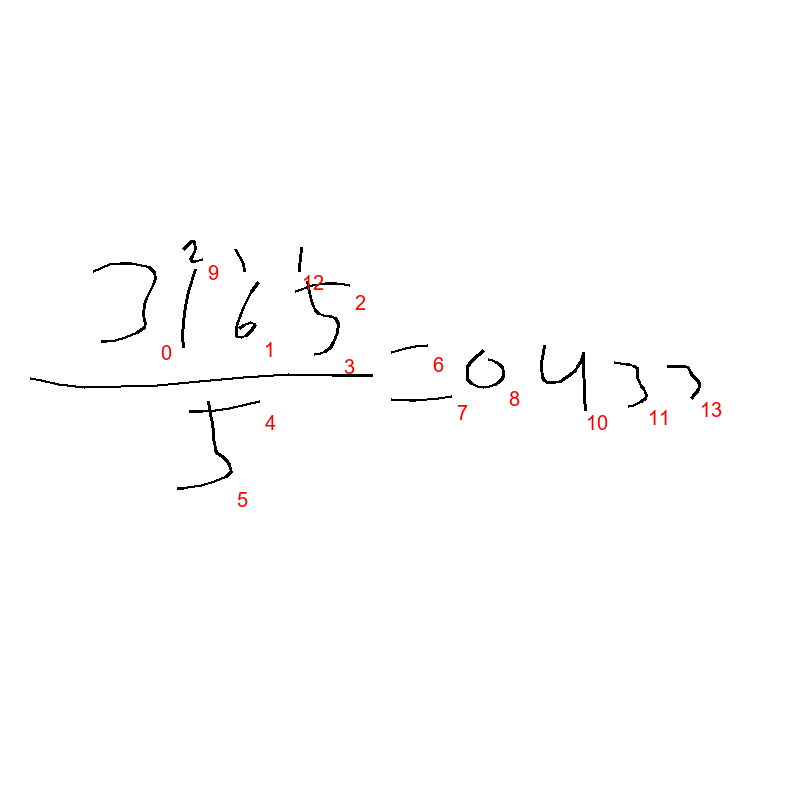 3 ²1 ¹6 ¹5
5
= 0433
0
1
2
3
4
5
6
7
8
9
10
11
12
13